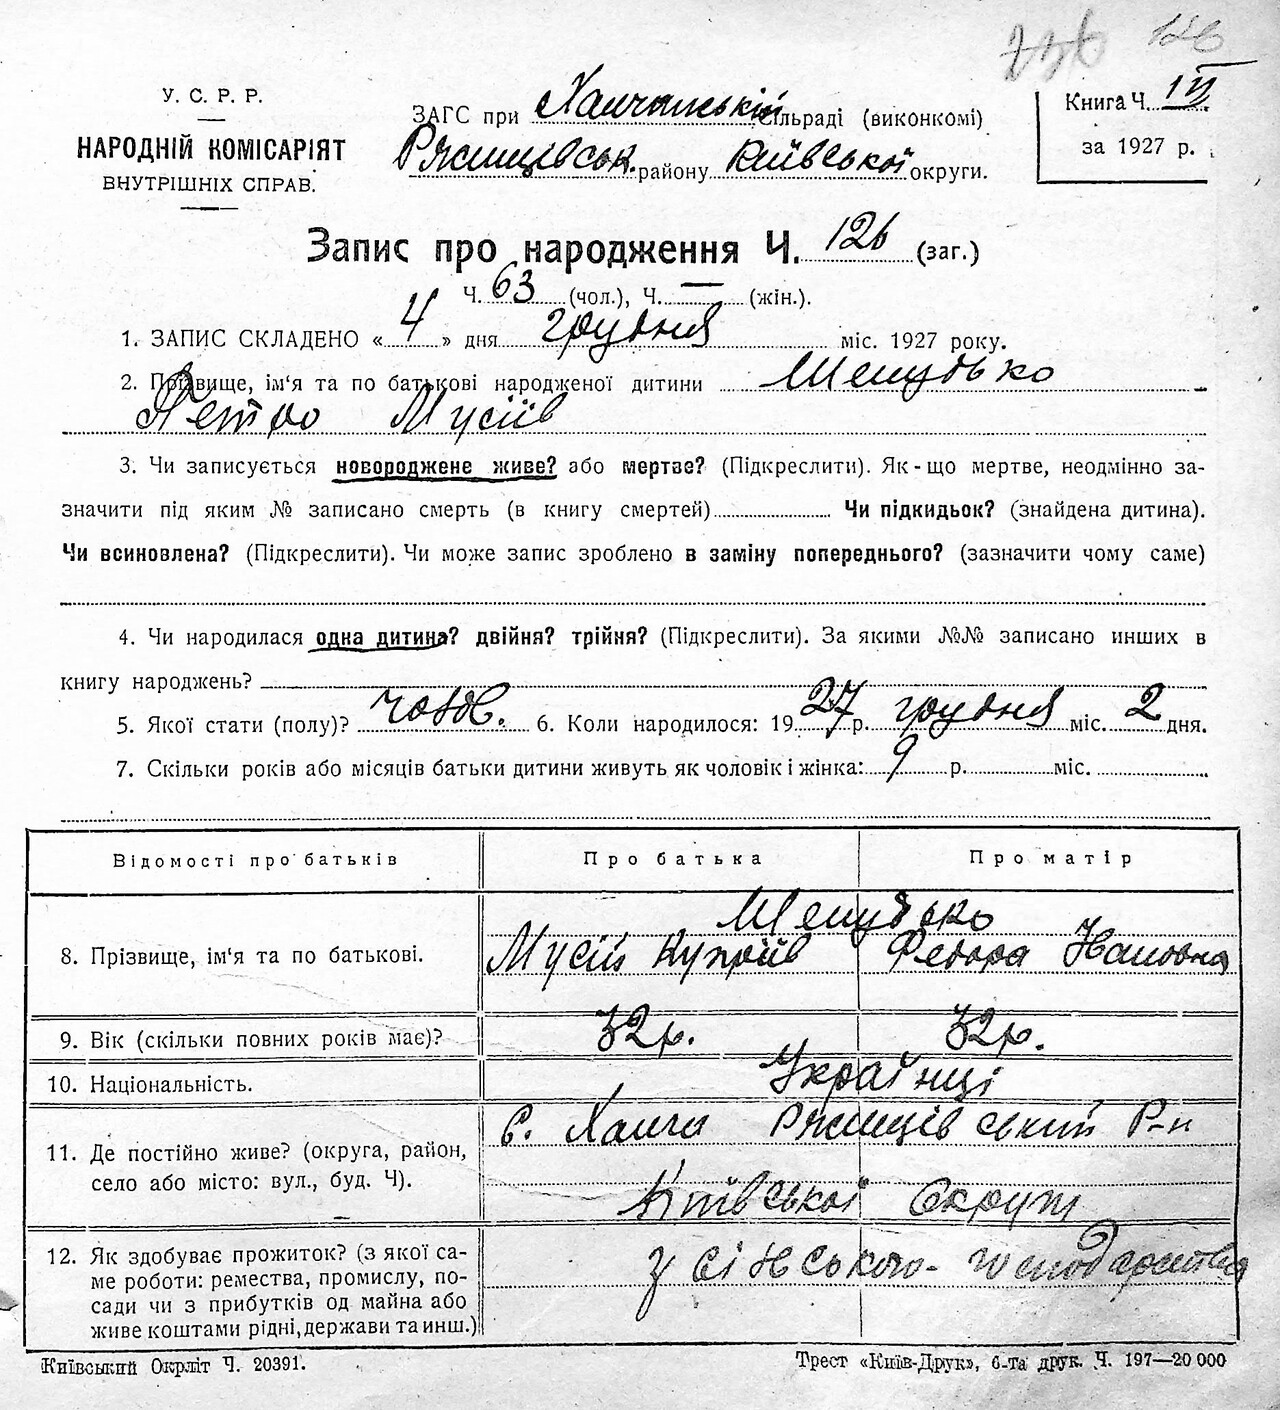 126
У. С. Р. Р.
НАРОДНІЙ КОМІСАРІЯТ
ВНУТРІШНІХ СПРАВ.
ЗАГС при Ханчанській сільраді (виконкомі)
Ржищівськ. району Київської округи.
Книга Ч. III
за 1927 р.
Запис про народження Ч. 126 (заг.)
Ч. 63 (чол.), Ч. — (жін.).
1. ЗАПИС СКЛАДЕНО « 4 » дня грудня міс. 1927 року.
2. Прізвище, ім'я та по батькові народженої дитини Шелудько
Петро Мусіїв
3. Чи записується новороджене живе? або мертве? (Підкреслити). Як-що мертве, неодмінно за-
значити під яким № записано смерть (в книгу смертей) Чи підкидьок? (знайдена дитина).
Чи всиновлена? (Підкреслити). Чи може запис зроблено в заміну попереднього? (зазначити чому саме)
4. Чи народилася одна дитина? двійня? трійня? (Підкреслити). За якими №№ записано инших в
книгу народжень?
5. Якої стати (полу)? чолов. 6. Коли народилося: 19 27 р. грудня міс. 2 дня.
7. Скільки років або місяців батьки дитини живуть як чоловік і жінка: 9 р. міс.
Відомості про батьків Про батька Про матір
Шелудько
8. Прізвище, ім'я та по батькові. Мусій Купріїв Федора Івановна
9. Вік (скільки повних років має)? 32 р. 32 р.
10. Національність. Українці
с. Ханча Ржищівський Р-н
11. Де постійно живе? (округа, район,
село або місто: вул., буд. Ч). Київської Округи
12. Як здобуває прожиток? (з якої са- З сільського господарства
ме роботи: ремества, промислу, по-
сади чи з прибутків од майна або
живе коштами рідні, держави та инш.)
Київський Окрліт Ч. 20391.
Трест «Київ-Друк», 6-та друк. Ч. 197—20 000